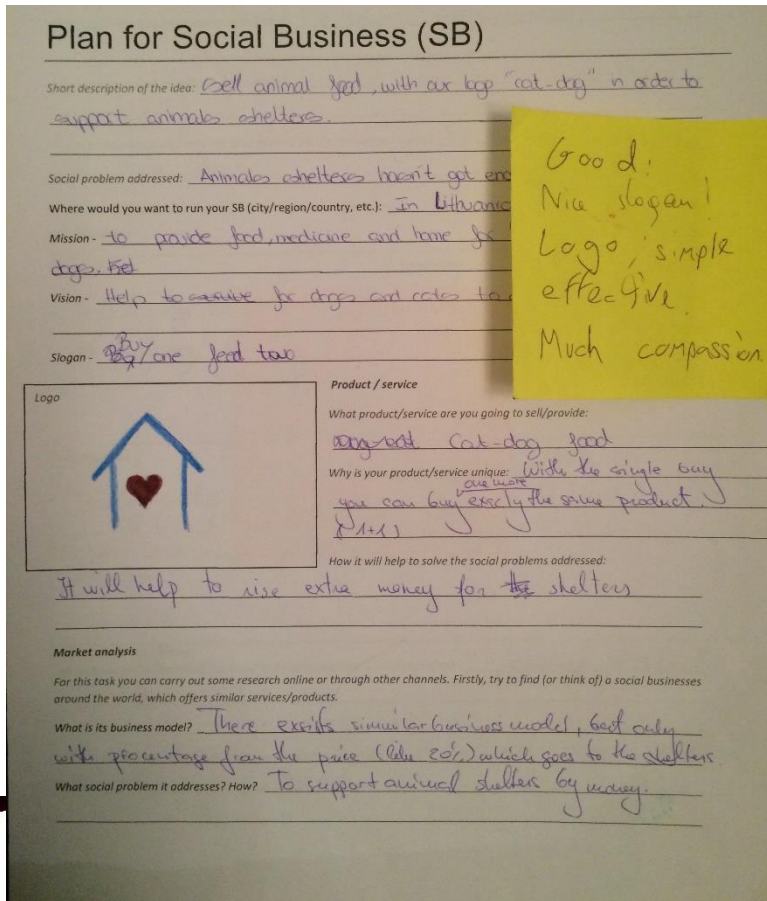 Plan for Social Business (SB)
Short description of the idea: Sell animal food, with our logo "cat-dog" in order to
support animals shelters.
Social problem addressed: Animals shelters hasn't got
Where would you want to run your SB (city/region/country, etc.): In Lithuania
Mission - to provide food, medicine and home for
dogs.
Vision - Help to survive for dogs and cats to
Slogan - Buy one feed two
Good!
Nice slogan!
Logo, simple
effective.
Much compassion
Logo
Product / service
What product/service are you going to sell/provide:
Cat-dog food
Why is your product/service unique: With the single buy
you can buy one more exacly the same product.
(1+1)
How it will help to solve the social problems addressed:
It will help to rise extra money for shelters
Market analysis
For this task you can carry out some research online or through other channels. Firstly, try to find (or think of) a social businesses
around the world, which offers similar services/products.
What is its business model? There exsists simmilar business model, but only
with procentage from the price (like 20%) which goes to the shelters
What social problem it addresses? How? To support animal shelters by money.